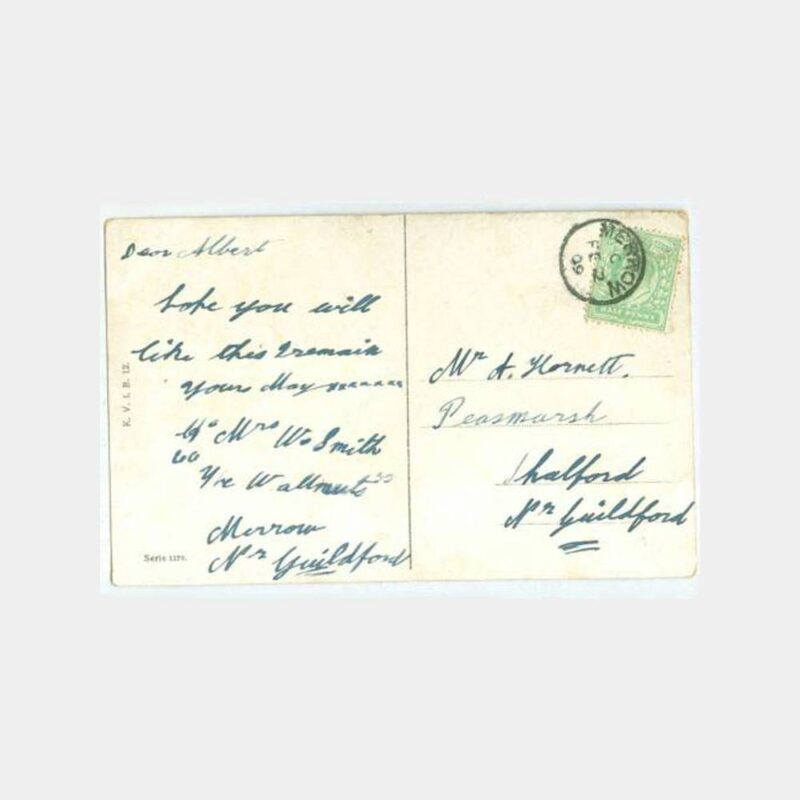 Dear Albert
hope you will
like this I remain
yours May xxxxxxx
c/o Mrs W. Smith
60
Merrow
Nr Guildford
K. V. i. B. 12.
Serie 1179.
MERROW
HALF PENNY
Mr A. Hornett.
Peasmarsh
Shalford
Nr Guildford